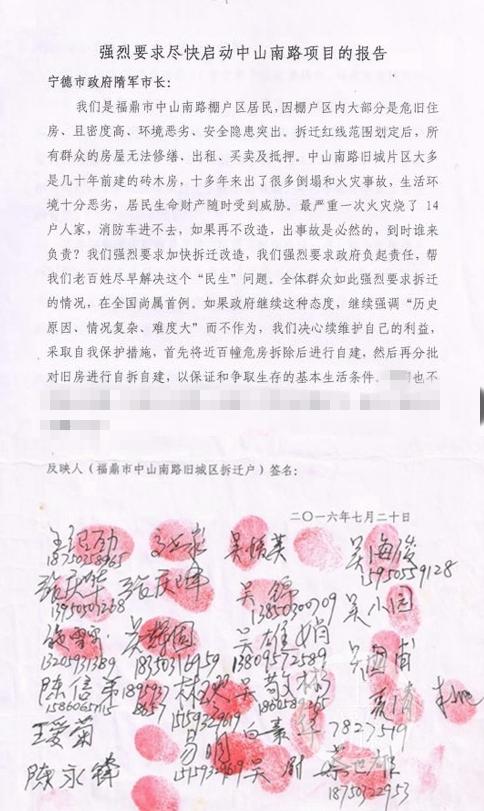 强烈要求尽快启动中山南路项目的报告
宁德市政府隋军市长：
我们是福鼎市中山南路棚户区居民，因棚户区内大部分是危旧住
房、且密度高、环境恶劣、安全隐患突出。拆迁红线范围划定后，所
有群众的房屋无法修缮、出租、买卖及抵押。中山南路旧城片区大多
是几十年前建的砖木房，十多年来出了很多倒塌和火灾事故，生活环
境十分恶劣，居民生命财产随时受到威胁。最严重一次火灾烧了 14
户人家，消防车进不去，如果再不改造，出事故是必然的，到时谁来
负责？我们强烈要求加快拆迁改造，我们强烈要求政府负起责任，帮
我们老百姓尽早解决这个“民生”问题。全体群众如此强烈要求拆迁
的情况，在全国尚属首例。如果政府继续这种态度，继续强调“历史
原因、情况复杂、难度大”而不作为，我们决心续维护自己的利益，
采取自我保护措施，首先将近百幢危房拆除后进行自建，然后再分批
对旧房进行自拆自建，以保证和争取生存的基本生活条件。 也不
反映人（福鼎市中山南路旧城区拆迁户）签名：
二〇一六年七月二十日
吴海俊
18750258965 15950559128
张庆华 张庆 吴锦 吴小园
13950507268 13850300709
吴辉国 吴雄娟
13205931389 18350316959 13809572589
陈信弟 吴敬彬
15860657115
王爱菊 易明 7827519
陈永锋 吴尉 蔡也雄
18750322953